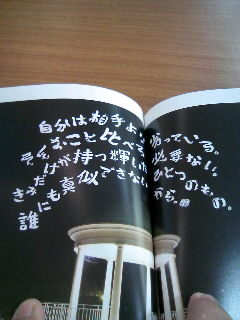 自分は相手より劣っている。
そんなこと比べる必要ない。
きみだけが持つ輝いたひとつのもの。
誰にも真似できないから。